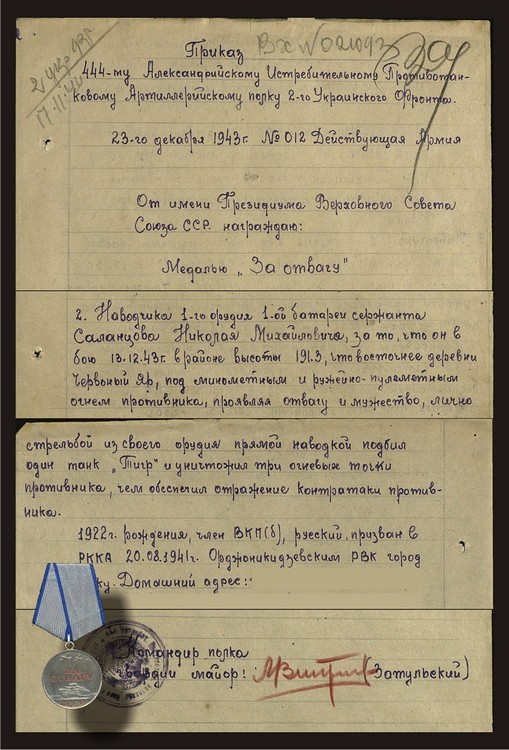 Приказ
Вх №021093
444-му Александрийскому Истребительному Противотан-
ковому Артиллерийскому полку 2-го Украинского Фронта.
23-го декабря 1943г. №012 Действующая Армия
От имени Президиума Верховного Совета
Союза ССР. награждаю:
Медалью „За отвагу"
2. Наводчика 1-го орудия 1-ой батареи сержанта
Саланцова Николая Михайловича, за то, что он в
бою 13.12.43г. в районе высоты 191.3, что восточнее деревни
Червоный Яр, под минометным и ружейно-пулеметным
огнем противника, проявляя отвагу и мужество, лично
стрельбой из своего орудия прямой наводкой подбил
один танк „Тигр" и уничтожил три огневых точки
противника, чем обеспечил отражение контратаки против-
ника.
1922г. рождения, член ВКП(б), русский, призван в
РККА 20.08.1941г. Орджоникидзевским РВК город
ку. Домашний адрес:
Командир полка
гвардии майор: (Затульский)
ЗА ОТВАГУ